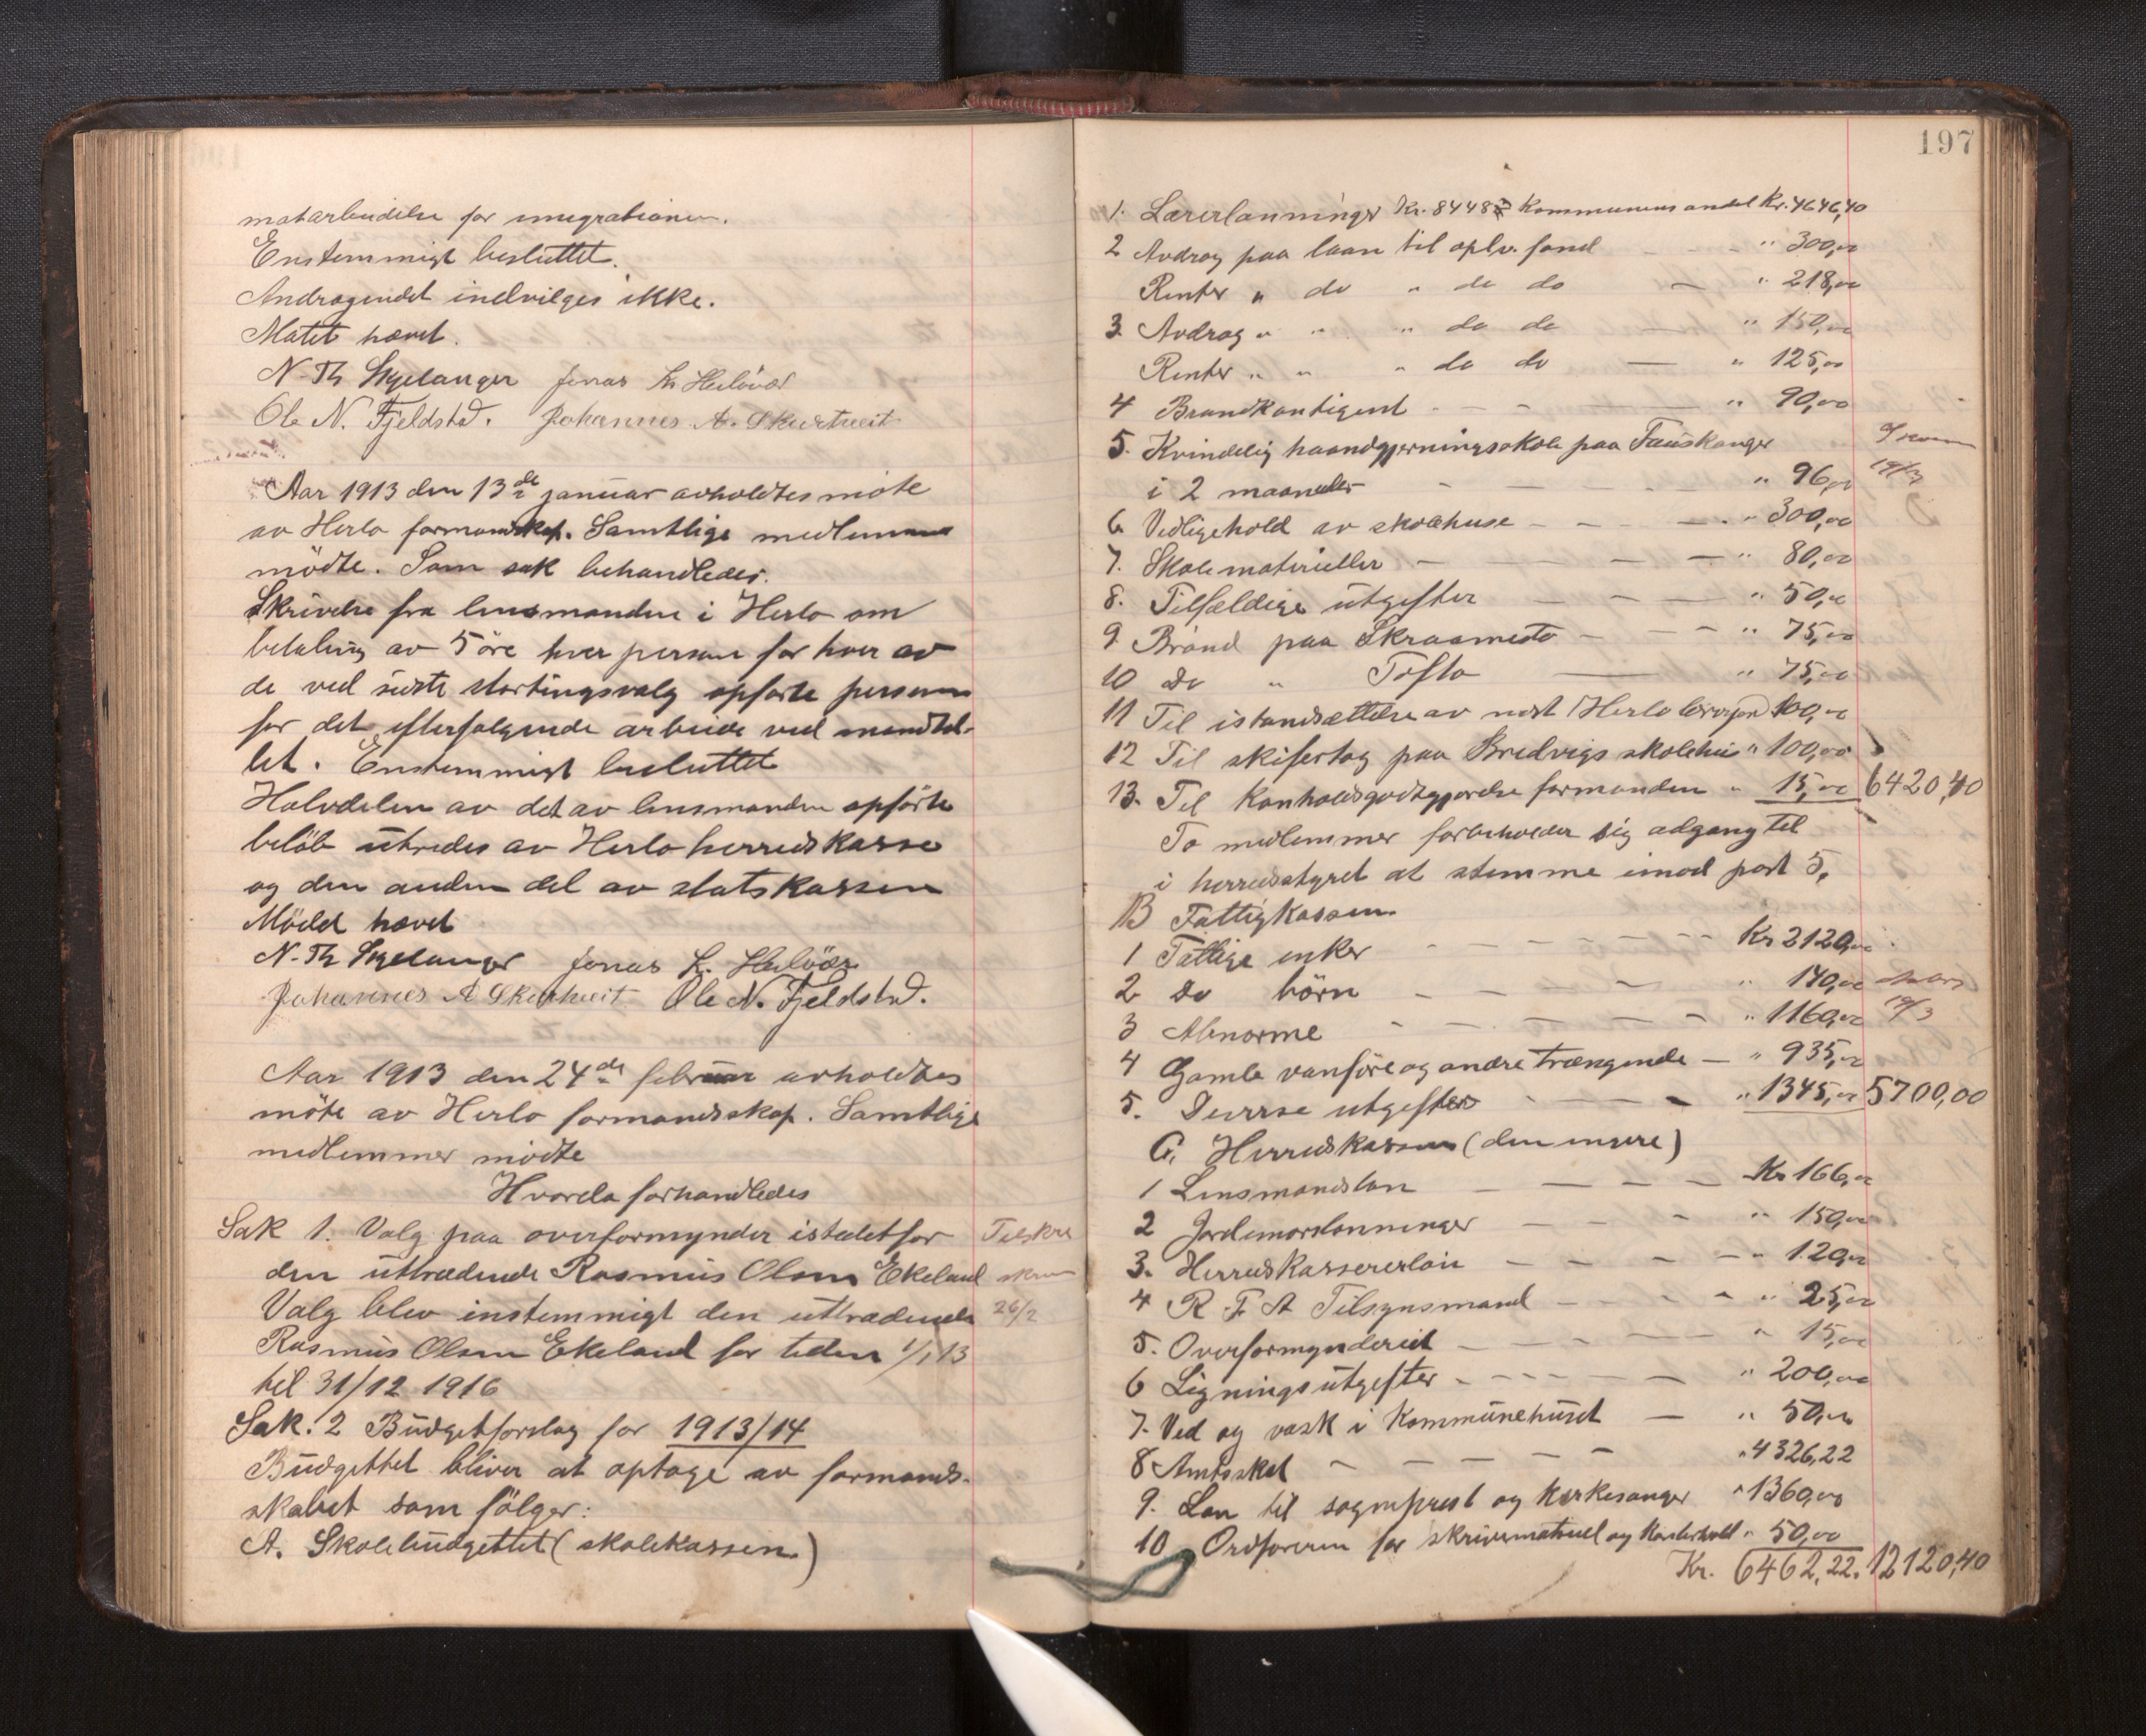 motarbeidelse for emigrationen.
Enstemmigt besluttet.
Andragendet indvilges ikke.
Møtet hævet.
N. Th Skjelanger Jonas L. Herlövær
Ole N. Fjeldstad. Johannes A. Skurtveit
Aar 1913 den 13de januar avholdtes möte
av Herlo formandskap. Samtlige medlemmer
mödte. Som sak behandledes.
Skrivelse fra lensmanden i Herlo om
betaling av 5 öre hver person for hver av
de ved siste stortingsvalg opförte personer
for det efterfølgende arbeide ved mandtal-
let. Enstemmigt besluttet
Halvdelen av det av lensmanden opförte
belöb utredes av Herlo herredskasse
og den anden del av statskassen
Mödet hævet
N. Th Skjelanger Jonas L. Herlövær
Johannes A Skurtveit Ole N. Fjeldstad.
Aar 1913 den 24de februar avholdtes
möte av Herlo formandsskap. Samtlige
medlemmer mödte
Hvorda forhandledes
Sak 1. Valg paa overformynder istedetfor
den uttrædende Rasmus Olsen Ekeland
Valg blev enstemmigt den uttrædende
26/2
Rasmus Olsen Ekeland for tiden 1/1 13
til 31/12 1916
Sak. 2 Budgetforslag for 1913/14
Budgettet bliver at optage av formand-
skabet som fölger:
A. Skolebudgettet (skolekassen)
197
1. Lærerlønninger Kr. 8448 Kommunens andel Kr. 4646,40
2 Avdrag paa laan til oplv. fond - - - " 300,00
Renter " do " do do — " 218,00
3 Avdrag " " " do do — " 150,00
Renter " " " do do — " 125,00
4 Brandkontigent - - — " 90,00
5. Kvindelig haandgjerningsskole paa Fauskanger
i 2 maaneder - - - - " 96,00
6 Vedligehold av skolehuse - - - — " 300,00
7. Skolematerieller - — - — " 80,00
8. Tilfældige utgifter — - — " 50,00
9 Brænd paa Skraamestø - - - - " 75,00
10 do " Tofto — " 75,00
11 Til istandsættelse av nøst 100,00
12 Til skifertag paa Bredvigs skolehus " 100,00
13. Til Konholdsgodtgjørelse formanden " 15,00 6420,40
To medlemmer forbeholder sig adgang til
i herredsstyret at stemme imod post 5.
B Fattigkassen
1 Fattige enker - - - - - - Kr 2120,00
2 do börn - - - - - " 140,00
3 Abnorme - - - - - - " 1160,00
4 Gamle vanföre og andre trængende — " 935,00
5. Diverse utgifter - - — - " 1345,00 5700,00
C. Herredskassen (den engere)
1 Lensmandsløn — — - — Kr 166,00
2 Jordemorslønninger — - - " 150,00
3. Herredskassererløn - - - - - " 120,00
4 R. F. A Tilsynsmand — - - - " 25,00
5. Overformynderiet — - - — " 15,00
6 Ligningsutgifter - - - - — — " 200,00
7. Ved og vask i Kommunehuset — " 50,00
8 Amtsskat — — — — — " 4326,22
9. Løn til sogneprest og kirkesanger " 1360,00
10 Ordføreren for skrivematriel og Kontorhold " 50,00
Kr. 6462,22. 12120,40